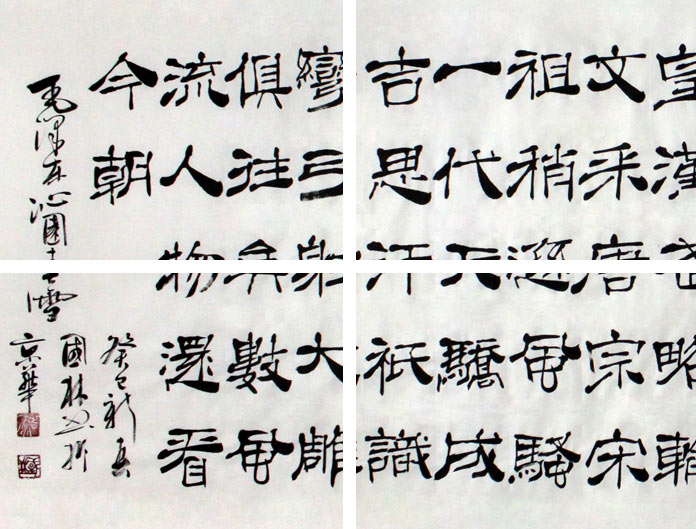 皇漢武略輸
文采唐宗宋
祖稍遜風騷
一代天驕成
吉思汗祇識
彎弓射大雕
俱往矣數風
流人物還看
今朝
毛澤東沁園春雪
癸巳新春
國林書於
京華